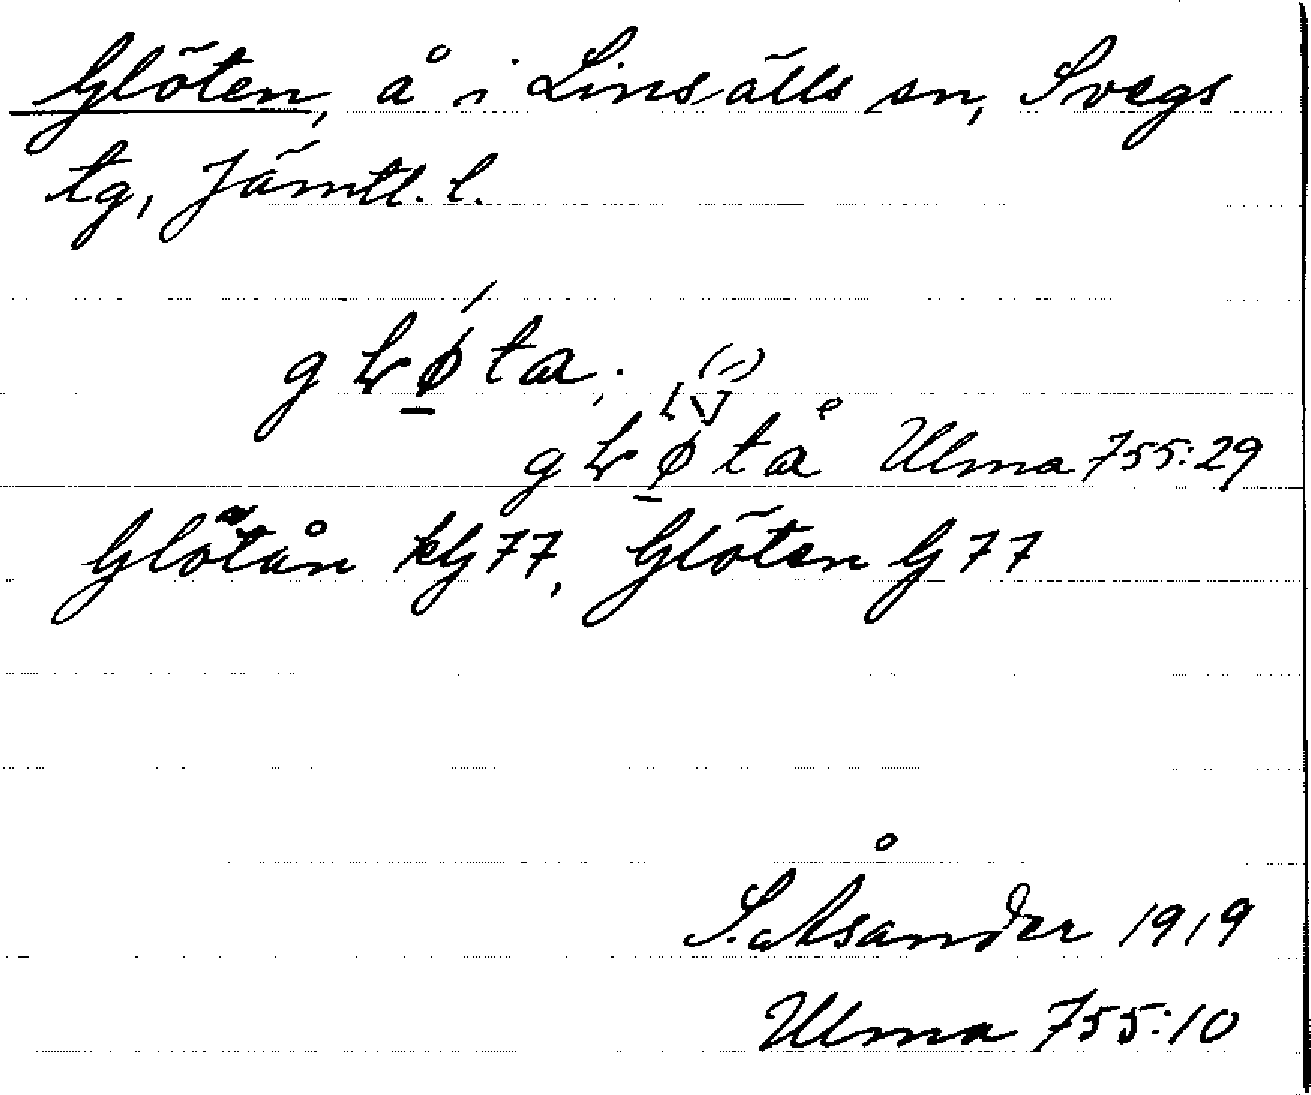 Glöten, å i Linsälls sn, Svegs
tg, Jämtl. l.
Ulma 755:29
Glötån kG77, Glöten G77
S. Åsander 1919
Ulma 755:10